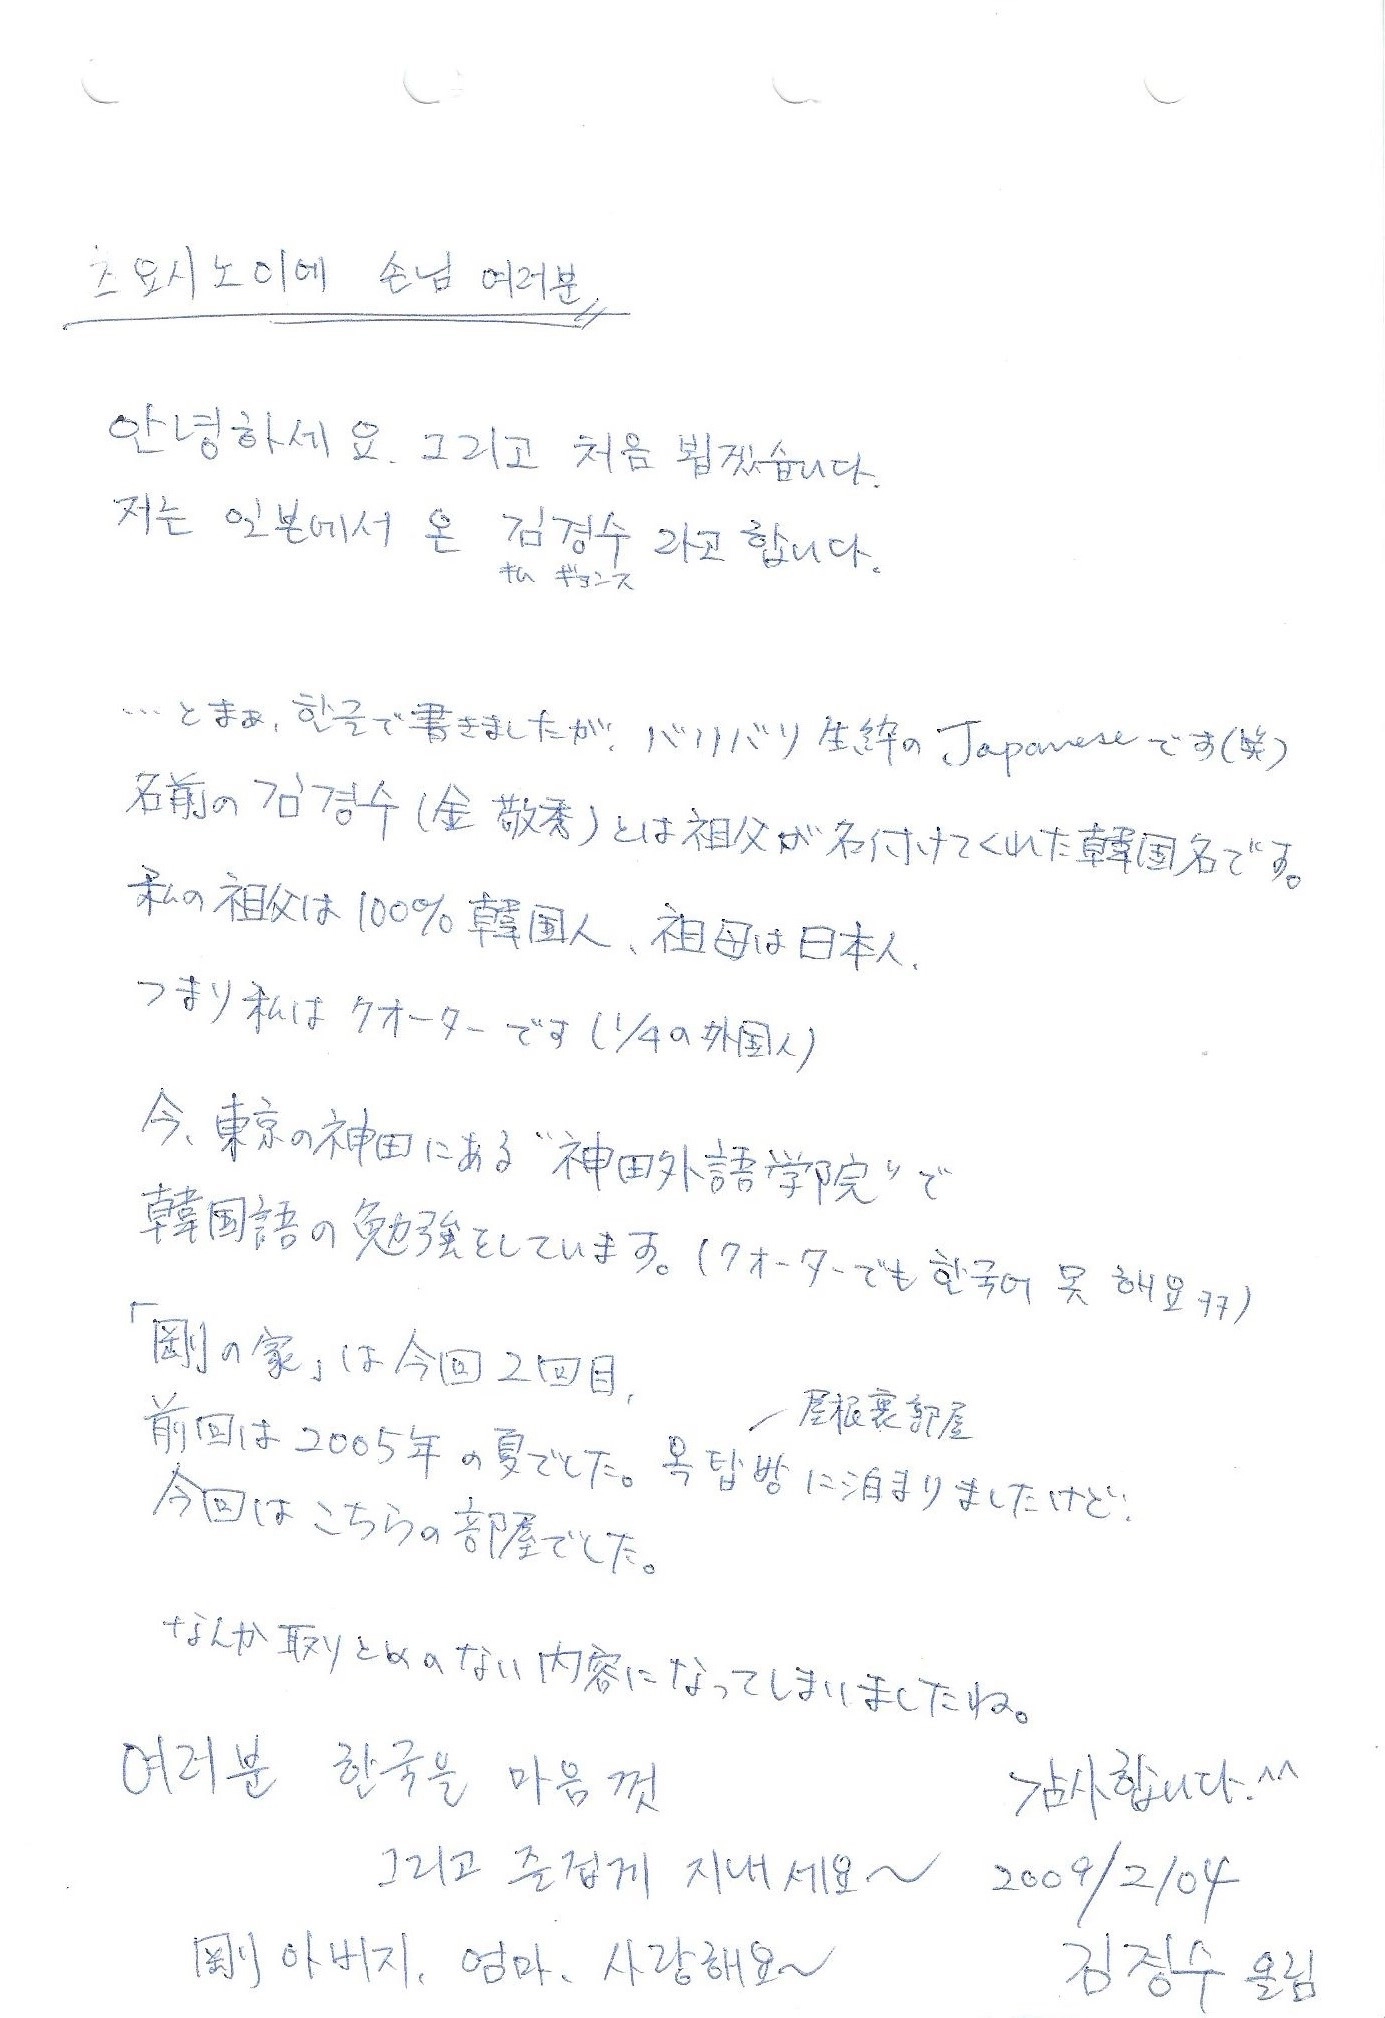 츠요시노이에 손님 여러분
안녕하세요. 그리고 처음 뵙겠습니다.
저는 일본에서 온 김경수 라고 합니다.
キム ギョンス
…とまぁ, 한글で書きましたが, バリバリ生粋のJapaneseです(笑)
名前の김경수(金 敬秀)とは祖父が名付けてくれた韓国名です。
私の祖父は100%韓国人、祖母は日本人.
つまり私はクオーターです(1/4の外国人)
今、東京の神田にある“神田外語学院”で
韓国語の勉強をしています。(クオーターでも한국어 못 해요ㅋㅋ)
「剛の家」は今回2回目,
屋根裏部屋
前回は2005年の夏でした。옥탑방に泊まりましたけど,
今回はこちらの部屋でした。
なんか取りとめのない内容になってしまいましたね。
여러분 한국을 마음껏
감사합니다.^^
그리고 즐겁게 지내세요~
2009/2/04
剛아버지, 엄마, 사랑해요~
김경수 올림